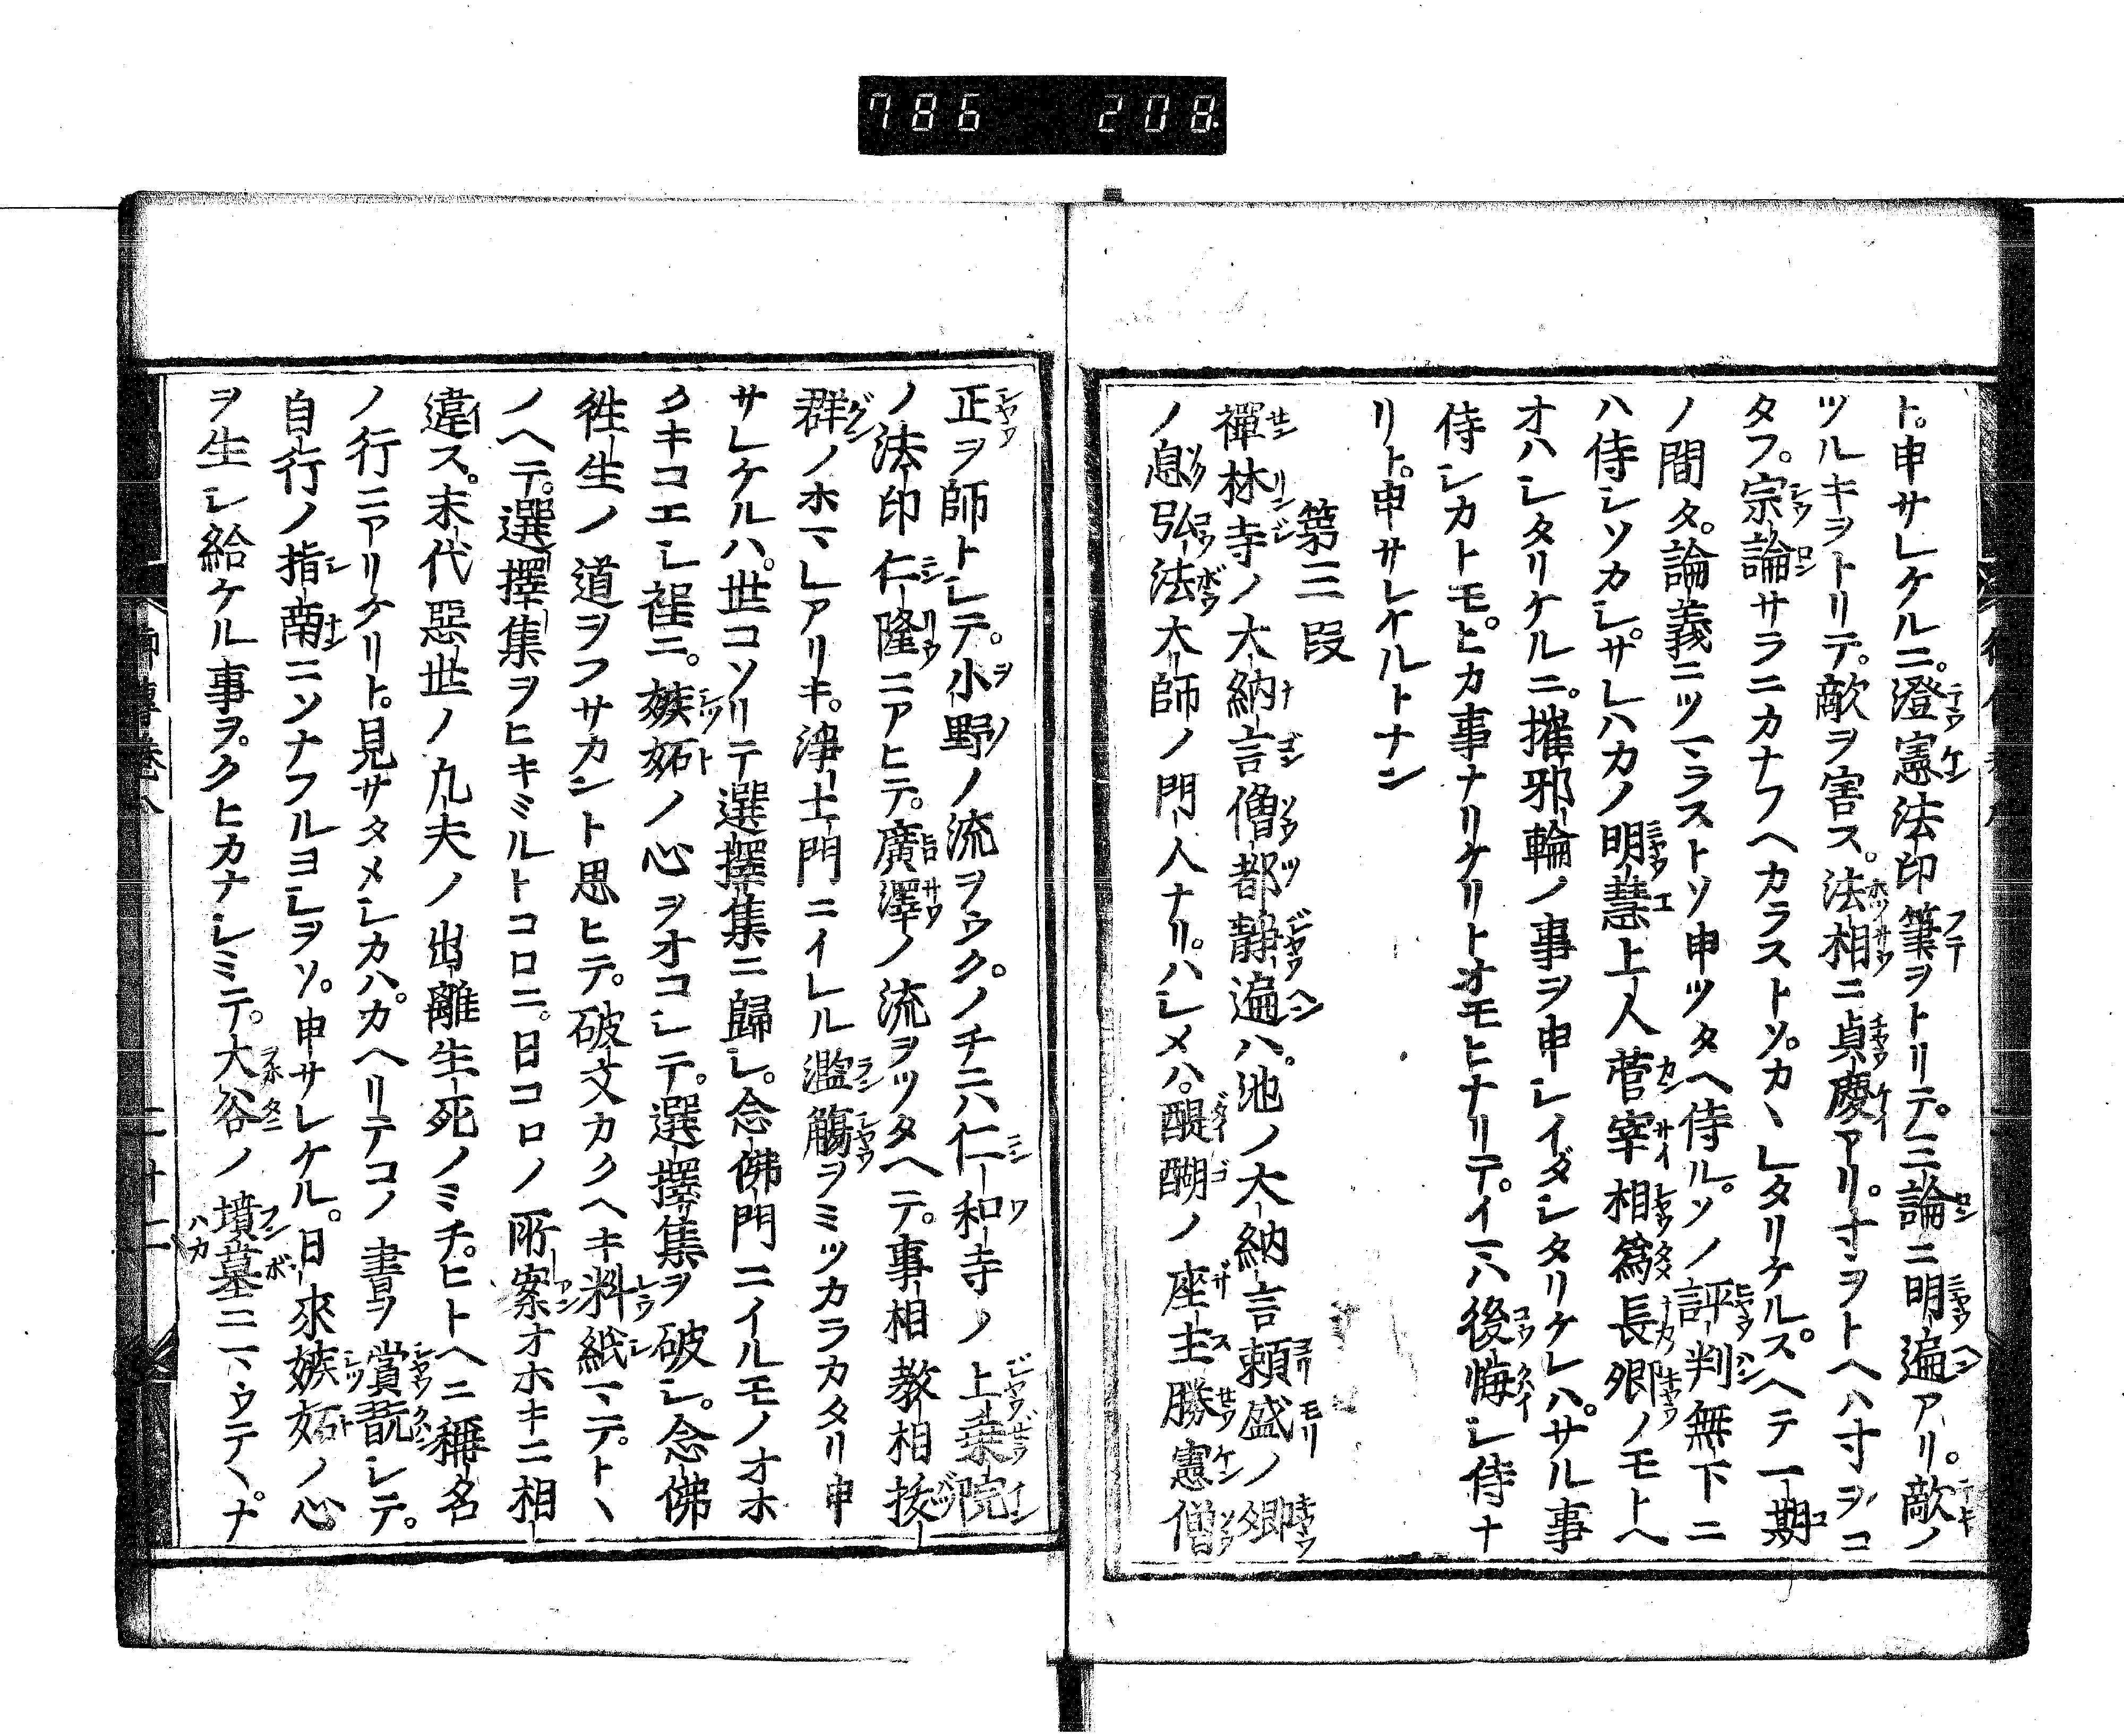 786 208
ト。申サレケルニ。澄憲法印筆ヲトリテ。三論ニ明遍アリ。敵ノ
ツルキヲトリテ。敵ヲ害ス。法相ニ貞慶アリ。寸ヲトヘハ寸ヲコ
タフ。宗論サラニカナフヘカラストソ。カヽレタリケル。スヘテ一期
ノ間タ。論義ニツマラストソ申ツタヘ侍ル。ソノ評判無下ニ
ハ侍シソカシ。サレハカノ明慧上人菅宰相爲長卿ノモトヘ
オハシタリケルニ。摧邪輪ノ事ヲ申シイダシタリケレハ。サル事
侍シカトモ。ヒカ事ナリケリトオモヒナリテ。イマハ後悔シ侍ナ
リト。申サレケルトナン
第三段
禪林寺ノ大納言僧都静遍ハ。池ノ大納言頼盛ノ卿
ノ息弘法大師ノ門人ナリ。ハシメハ。醍醐ノ座主勝憲僧
正ヲ師トシテ。小野ノ流ヲウク。ノチニハ仁和寺ノ上乗院
ノ法印仁隆ニアヒテ。廣澤ノ流ヲツタヘテ。事相教相抜
群ノホマレアリキ。淨土門ニイレル濫觴ヲミツカラカタリ申
サレケルハ。世コソリテ選擇集ニ歸シ。念佛門ニイルモノオホ
クキコエシ程ニ。嫉妬ノ心ヲオコシテ。選擇集ヲ破シ。念佛
徃生ノ道ヲフサカント思ヒテ。破文カクヘキ料紙マテトヽ
ノヘテ。選擇集ヲヒキミルトコロニ。日コロノ所案オホキニ相
違ス。末代惡世ノ凡夫ノ出離生死ノミチ。ヒトヘニ稱名
ノ行ニアリケリト。見サタメシカハ。カヘリテコノ書ヲ賞翫シテ。
自行ノ指南ニソナフルヨシヲソ。申サレケル。日來嫉妬ノ心
ヲ生シ給ケル事ヲ。クヒカナシミテ。大谷ノ墳墓ニマウテヽ。ナ
傳卷八 二十二